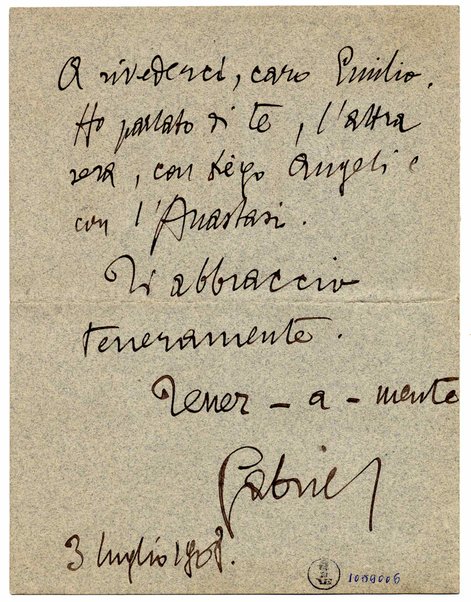 A rivederci, caro Emilio.
Ho parlato di te, l'altra
sera, con Diego Angeli e
con l'Anastasi.
Ti abbraccio
teneramente.
Tener-a-mente
Gabriel
3 luglio 1908.
1059006